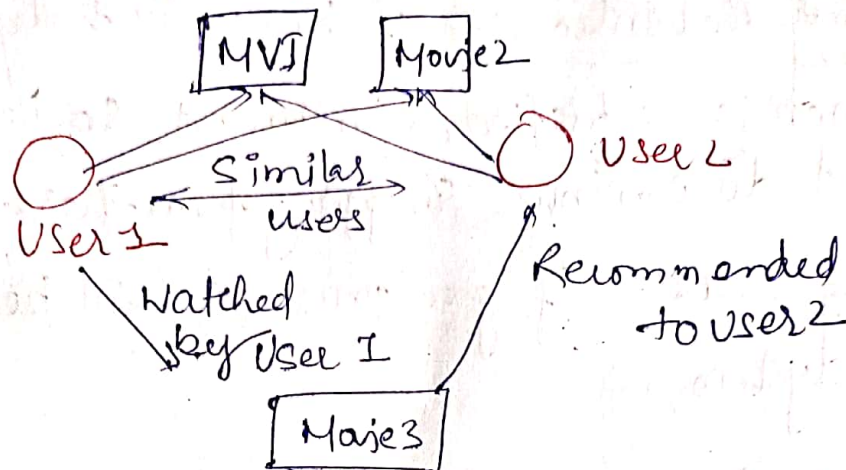 MVI
Movie2
Similar
users
User 1
User 2
Watched
by User I
Recommended
to user2
Movie3